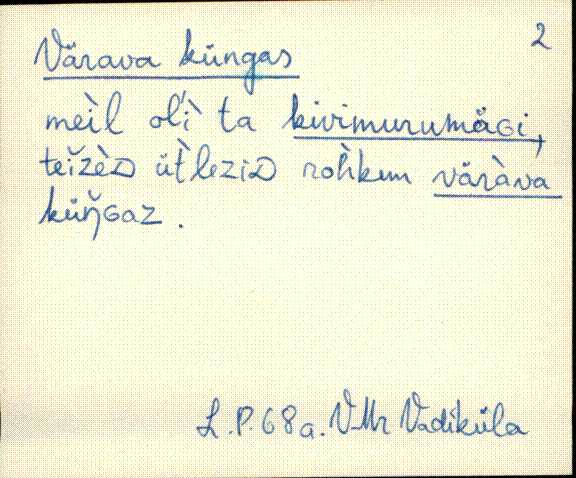 2
Värava küngas
meìl ol'ì ta kivimurumäGi,
teižèD üt̀leziD rohkem väràva
küŋ̌Gaz.
L.P. 68 a. VMr Vadiküla